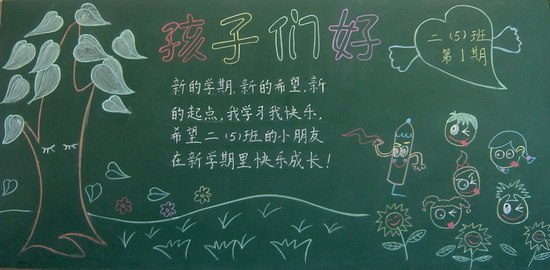 孩子们好
二(5)班
第1期
新的学期,新的希望,新
的起点,我学习我快乐.
希望二(5)班的小朋友
在新学期里快乐成长!